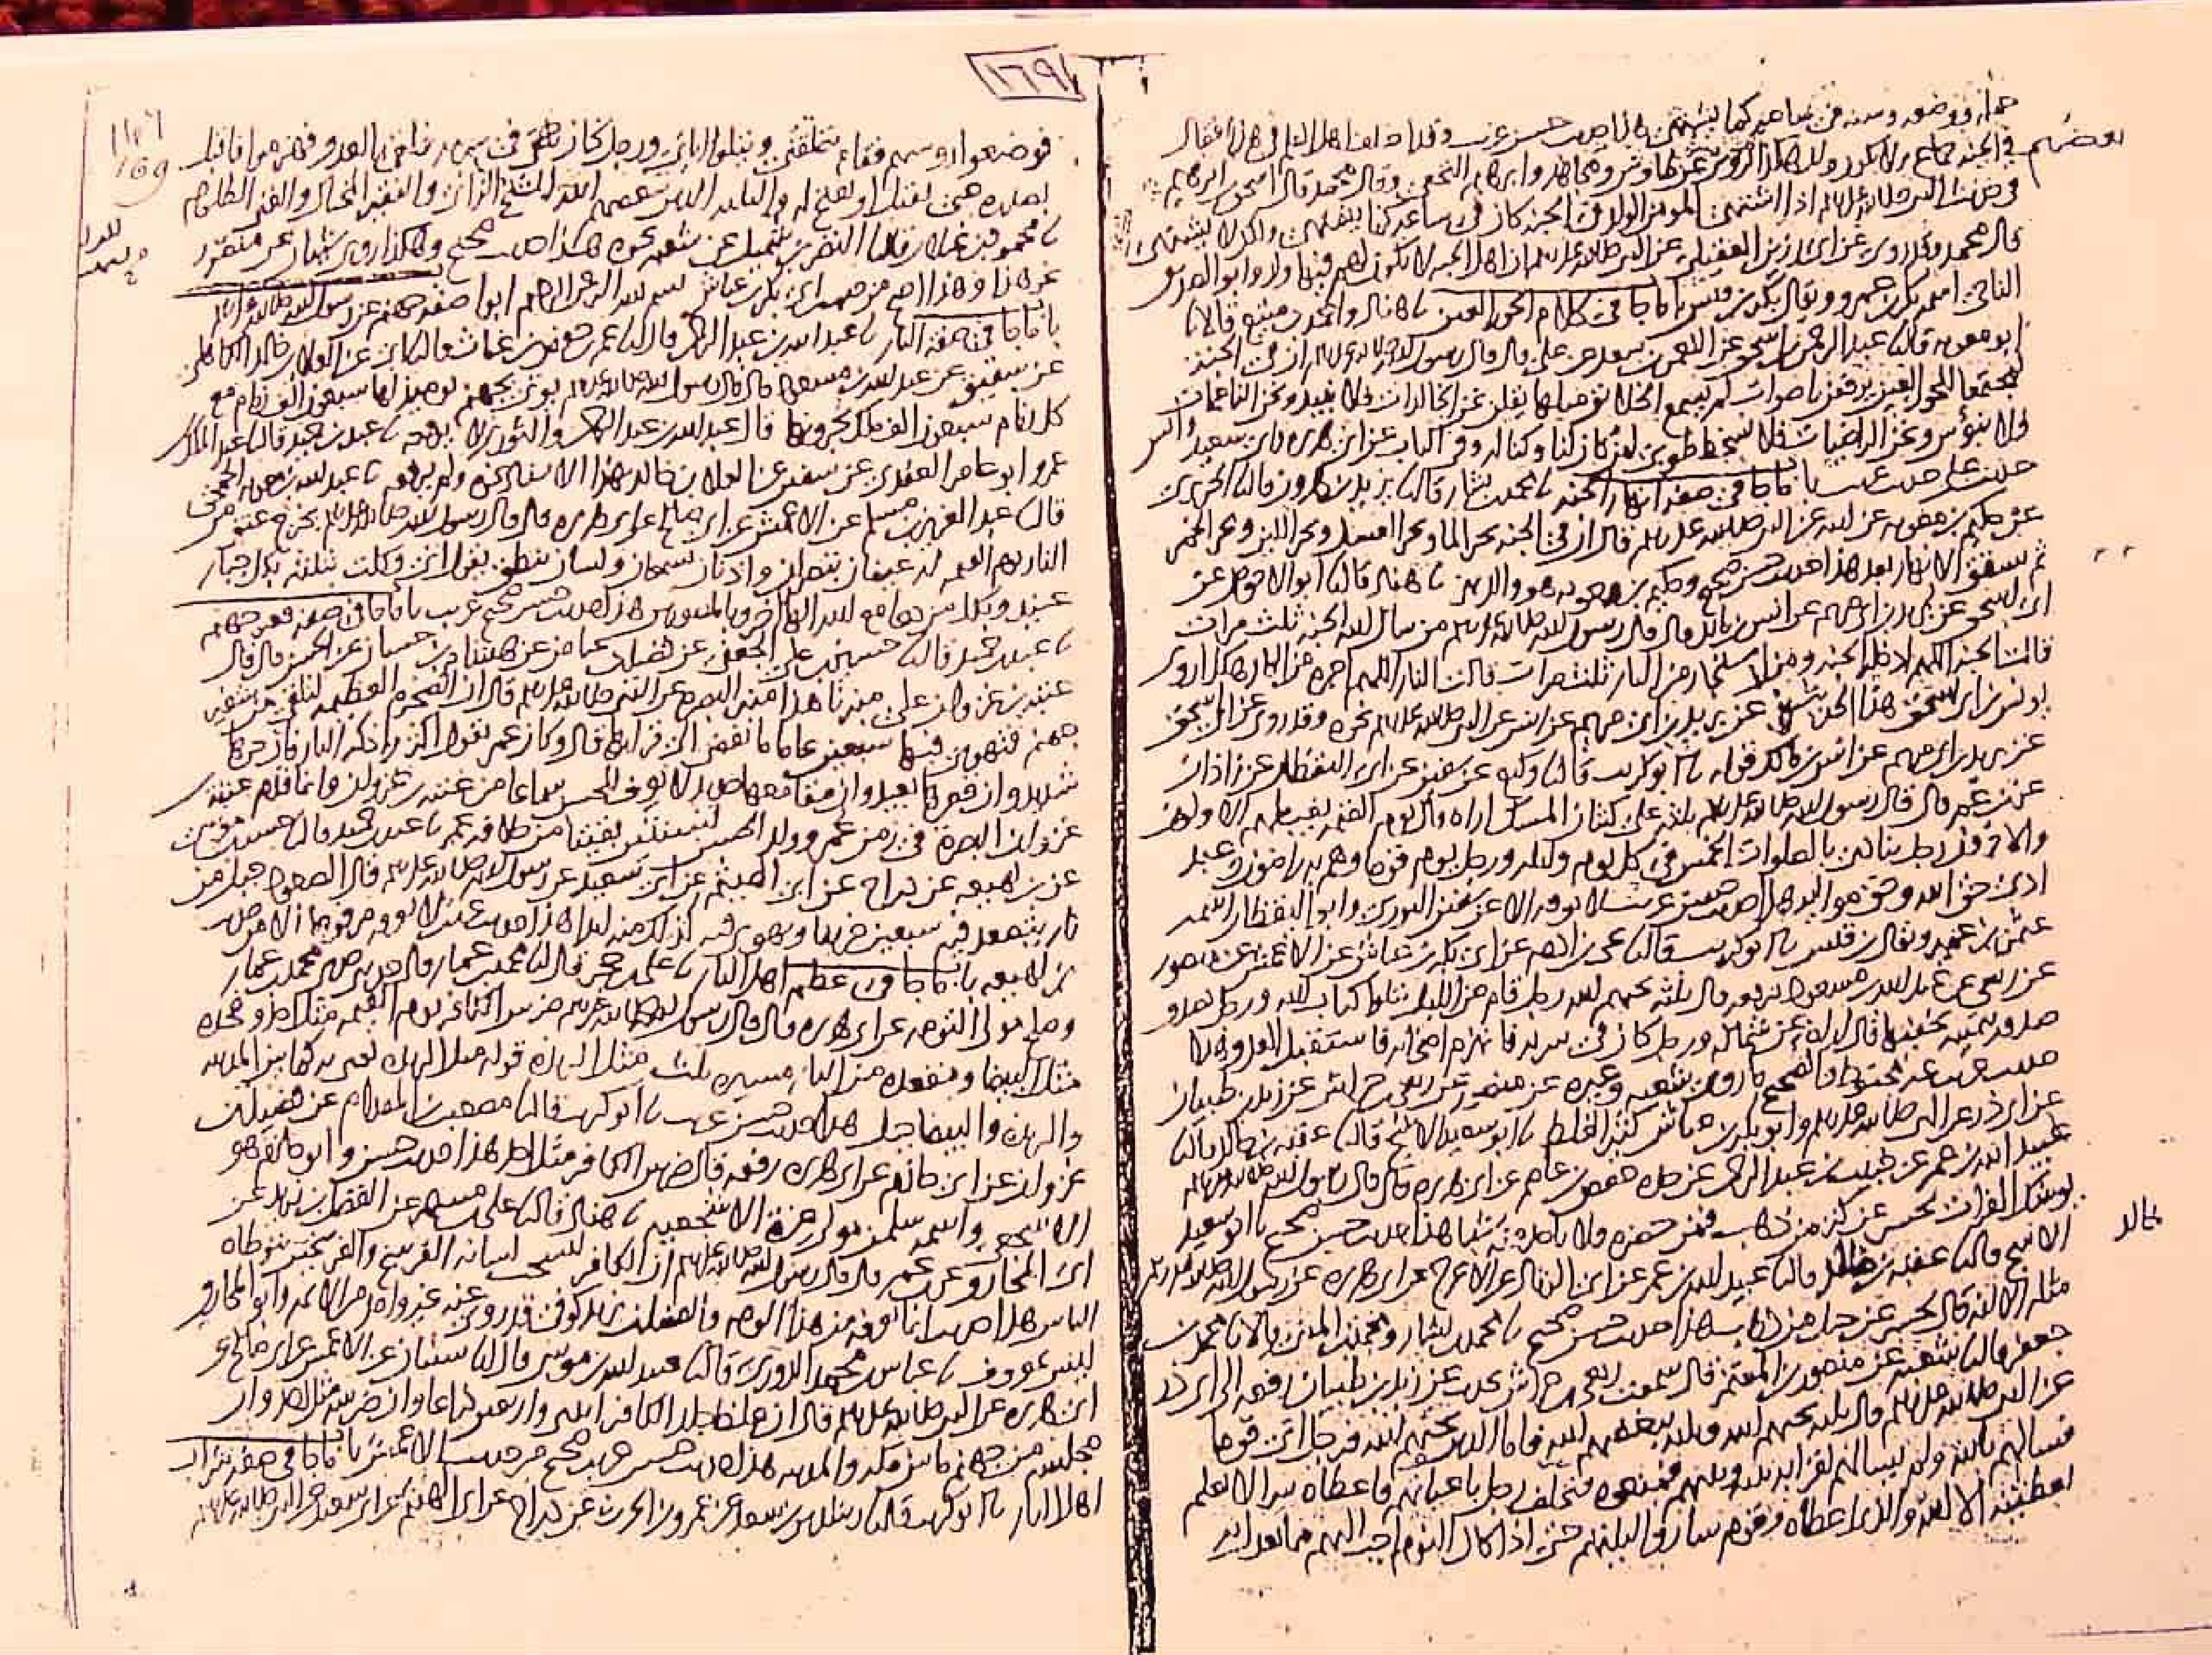 حمله ووضعه وسنه في ساعه كما يشتهي هذا حديث حسن غريب وقد اختلف اهل العلم في هذا فقال
بعضهم في الجنة جماع ولا يكون ولد هكذا يروى عن طاوس ومجاهد وابراهيم النخعي وقال محمد قال اسحق بن ابرهيم
في حديث النبي صلى الله عليه وسلم اذا اشتهى المومن الولد في الجنة كان في ساعة كما يشتهي ولكن لا يشتهي
قال محمد وقد روى عن ابي رزين العقيلي عن النبي صلى الله عليه وسلم ان اهل الجنة لا يكون لهم فيها ولد وابو الصديق
الناجي اسمه بكر بن عمرو ويقال بكر بن قيس باب ما جا في كلام الحور العين نا هناد واحمد بن منيع قالا نا
ابو معويه قال نا عبد الرحمن بن اسحق عن النعمن بن سعد عن علي قال قال رسول الله صلى الله عليه وسلم ان في الجنة
لمجتمعا للحور العين يرفعن باصوات لم يسمع الخلايق مثلها يقلن نحن الخالدات فلا نبيد ونحن الناعمات
فلا نبؤس ونحن الراضيات فلا نسخط طوبى لمن كان لنا وكنا له وفي الباب عن ابي هريره وابي سعيد وانس
حديث علي حديث غريب باب ما جا في صفة انهار الجنة نا محمد بن بشار قال نا يزيد بن هرون قال نا الجريري
عن حكيم بن معويه عن ابيه عن النبي صلى الله عليه وسلم قال ان في الجنة بحر الما وبحر العسل وبحر اللبن وبحر الخمر
ثم تشقق الانهار بعد هذا حديث حسن صحيح وحكيم بن معويه هو والد بهز نا هناد قال نا ابو الاحوص عن
ابي اسحق عن بريد بن ابي مريم عن انس بن مالك قال قال رسول الله صلى الله عليه وسلم من سال الله الجنة ثلث مرات
قالت الجنة اللهم ادخله الجنة ومن استجار من النار ثلث مرات قالت النار اللهم اجره من النار هكذا روى
يونس بن ابي اسحق هذا الحديث عن بريد بن ابي مريم عن انس عن النبي صلى الله عليه وسلم نحوه وقد روى عن ابي اسحق
عن بريد بن ابي مريم عن انس بن مالك قوله نا ابو كريب قال نا وكيع عن سفين عن ابي اليقظان عن زاذان
عن ابن عمر قال قال رسول الله صلى الله عليه وسلم ثلثه على كثبان المسك اراه قال يوم القيمه يغبطهم الاولون
والاخرون رجل ينادي بالصلوات الخمس في كل يوم وليله ورجل يوم قوما وهم به راضون وعبد
ادى حق الله وحق مواليه هذا حديث حسن غريب لا نعرفه الا من حديث سفين الثوري وابو اليقظان اسمه
عثمن بن عمير ويقال بن قيس نا ابو كريب قال نا يحيى بن ادم عن ابي بكر بن عياش عن الاعمش عن منصور
عن ربعي عن عبد الله بن مسعود يرفعه قال ثلثه يحبهم الله رجل قام من الليل يتلوا كتاب الله ورجل تصدق
صدقه بيمينه يخفيها قال اراه عن شماله ورجل كان في سريه فانهزم اصحابه فاستقبل العدو هذا
حديث غريب غير محفوظ والصحيح ما روى شعبه وغيره عن منصور عن ربعي بن حراش عن زيد بن ظبيان
عن ابي ذر عن النبي صلى الله عليه وسلم وابو بكر بن عياش كثير الغلط نا ابو سعيد الاشج قال نا عقبه بن خالد قال نا
عبيد الله بن عمر عن خبيب بن عبد الرحمن عن جده حفص بن عاصم عن ابي هريره قال قال رسول الله صلى الله عليه وسلم
يوشك الفرات يحسر عن كنز من ذهب فمن حضره فلا ياخذ منه شيا هذا حديث حسن صحيح نا ابو سعيد
الاشج قال نا عقبه بن خالد قال نا عبيد الله بن عمر عن ابي الزناد عن الاعرج عن ابي هريره عن رسول الله صلى الله عليه وسلم
خالد
مثله الا انه قال يحسر عن جبل من ذهب هذا حديث حسن صحيح نا محمد بن بشار ومحمد بن المثنى قالا نا محمد بن
جعفر قال نا شعبه عن منصور بن المعتمر قال سمعت ربعي بن حراش يحدث عن زيد بن ظبيان رفعه الى ابي ذر
عن النبي صلى الله عليه وسلم قال ثلثه يحبهم الله وثلثه يبغضهم الله فاما الذين يحبهم الله فرجل اتى قوما
فسالهم بالله ولم يسالهم لقرابه بينه وبينهم فمنعوه فتخلف رجل باعيانهم فاعطاه سرا لا يعلم
بعطيته الا الله والذي اعطاه وقوم ساروا ليلتهم حتى اذا كان النوم احب اليهم مما يعدل به
١٦٩
169
فوضعوا روسهم فقام يتملقني ويتلوا اياتي ورجل كان في سريه فلقي العدو فهزموا فاقبل
بصدره حتى يقتل او يفتح له والثلثه الذين يبغضهم الله الشيخ الزاني والفقير المختال والغني الظلوم
نا محمود بن غيلان قال نا النضر بن شميل عن شعبه نحوه هذا حديث صحيح وهكذا روى شيبان عن منصور
نحو هذا وهذا اصح من حديث ابي بكر بن عياش بسم الله الرحمن الرحيم ابواب صفة جهنم عن رسول الله صلى الله عليه وسلم
باب ما جا في صفة النار نا عبد الله بن عبد الرحمن قال نا عمر بن حفص بن غياث قال نا ابي عن العلا بن خالد الكاهلي
عن شقيق عن عبد الله بن مسعود قال قال رسول الله صلى الله عليه وسلم يوتى بجهنم يوميذ لها سبعون الف زمام مع
كل زمام سبعون الف ملك يجرونها قال عبد الله بن عبد الرحمن والثوري لا يرفعه نا عبد بن حميد قال نا عبد الملك بن
عمرو ابو عامر العقدي عن سفين عن العلا بن خالد بهذا الاسناد نحوه ولم يرفعه نا عبد الله بن معويه الجمحي
قال نا عبد العزيز بن مسلم عن الاعمش عن ابي صالح عن ابي هريره قال قال رسول الله صلى الله عليه وسلم يخرج عنق من
النار يوم القيمه له عينان يبصران واذنان يسمعان ولسان ينطق يقول اني وكلت بثلثه بكل جبار
عنيد وبكل من دعا مع الله الها اخر وبالمصورين هذا حديث حسن صحيح غريب باب ما جا في صفة قعر جهنم
نا عبد بن حميد قال نا حسين بن علي الجعفي عن فضيل بن عياض عن هشام بن حسان عن الحسن قال قال
عتبه بن غزوان على منبرنا هذا منبر البصره عن النبي صلى الله عليه وسلم قال ان الصخره العظيمه لتلقى من شفير
جهنم فتهوي فيها سبعين عاما ما تفضي الى قرارها قال وكان عمر يقول اكثروا ذكر النار فان حرها
شديد وان قعرها بعيد وان مقامعها حديد لا نعرف للحسن سماعا من عتبه بن غزوان وانما قدم عتبه بن
غزوان البصرة في زمن عمر وولد الحسن لسنتين بقيتا من خلافه عمر نا عبد بن حميد قال نا حسن بن موسى
عن بن لهيعه عن دراج عن ابي الهيثم عن ابي سعيد عن رسول الله صلى الله عليه وسلم قال الصعود جبل من
نار يتصعد فيه سبعين خريفا ويهوي فيه كذلك منه ابدا هذا حديث غريب لا نعرفه مرفوعا الا من حديث
بن لهيعه باب ما جا في عظم اهل النار نا علي بن حجر قال نا محمد بن عمار قال حدثني جدي محمد بن عمار
وصالح مولى التومه عن ابي هريره قال قال رسول الله صلى الله عليه وسلم ضرس الكافر يوم القيمه مثل احد وفخذه
مثل البيضا ومقعده من النار مسيرة ثلث مثل الربذة قوله مثل الربذه يعني به كما بين المدينه
والربذه والبيضا جبل هذا حديث حسن غريب نا ابو كريب قال نا مصعب بن المقدام عن فضيل بن
غزوان عن ابي حازم عن ابي هريره رفعه قال ضرس الكافر مثل احد هذا حديث حسن وابو حازم هو
الاشجعي واسمه سلمن مولى عزة الاشجعيه نا هناد قال نا علي بن مسهر عن الفضل بن يزيد عن
ابي المخارق عن بن عمر قال قال رسول الله صلى الله عليه وسلم ان الكافر ليسحب لسانه الفرسخ والفرسخين يتوطاه
الناس هذا حديث انما نعرفه من هذا الوجه والفضل بن يزيد كوفي قد روى عنه غير واحد من الائمه وابو المخارق
ليس بمعروف نا عباس بن محمد الدوري قال نا عبيد الله بن موسى قال نا شيبان عن الاعمش عن ابي صالح عن
ابي هريره عن النبي صلى الله عليه وسلم قال ان غلظ جلد الكافر اثنين واربعون ذراعا وان ضرسه مثل احد وان
مجلسه من جهنم ما بين مكه والمدينه هذا حديث حسن غريب صحيح من حديث الاعمش باب ما جا في صفة شراب
اهل النار نا ابو كريب قال نا رشدين بن سعد عن عمرو بن الحرث عن دراج عن ابي الهيثم عن ابي سعيد عن النبي صلى الله عليه وسلم